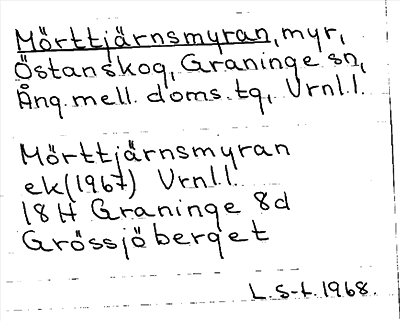 Mörttjärnsmyran, myr,
Östanskog, Graninge sn,
Ång. mell. doms. tg, Vrnl.l.
Mörttjärnsmyran
ek (1967) Vrnl.l.
18H Graninge 8d
Grössjöberget
L. S-t. 1968.